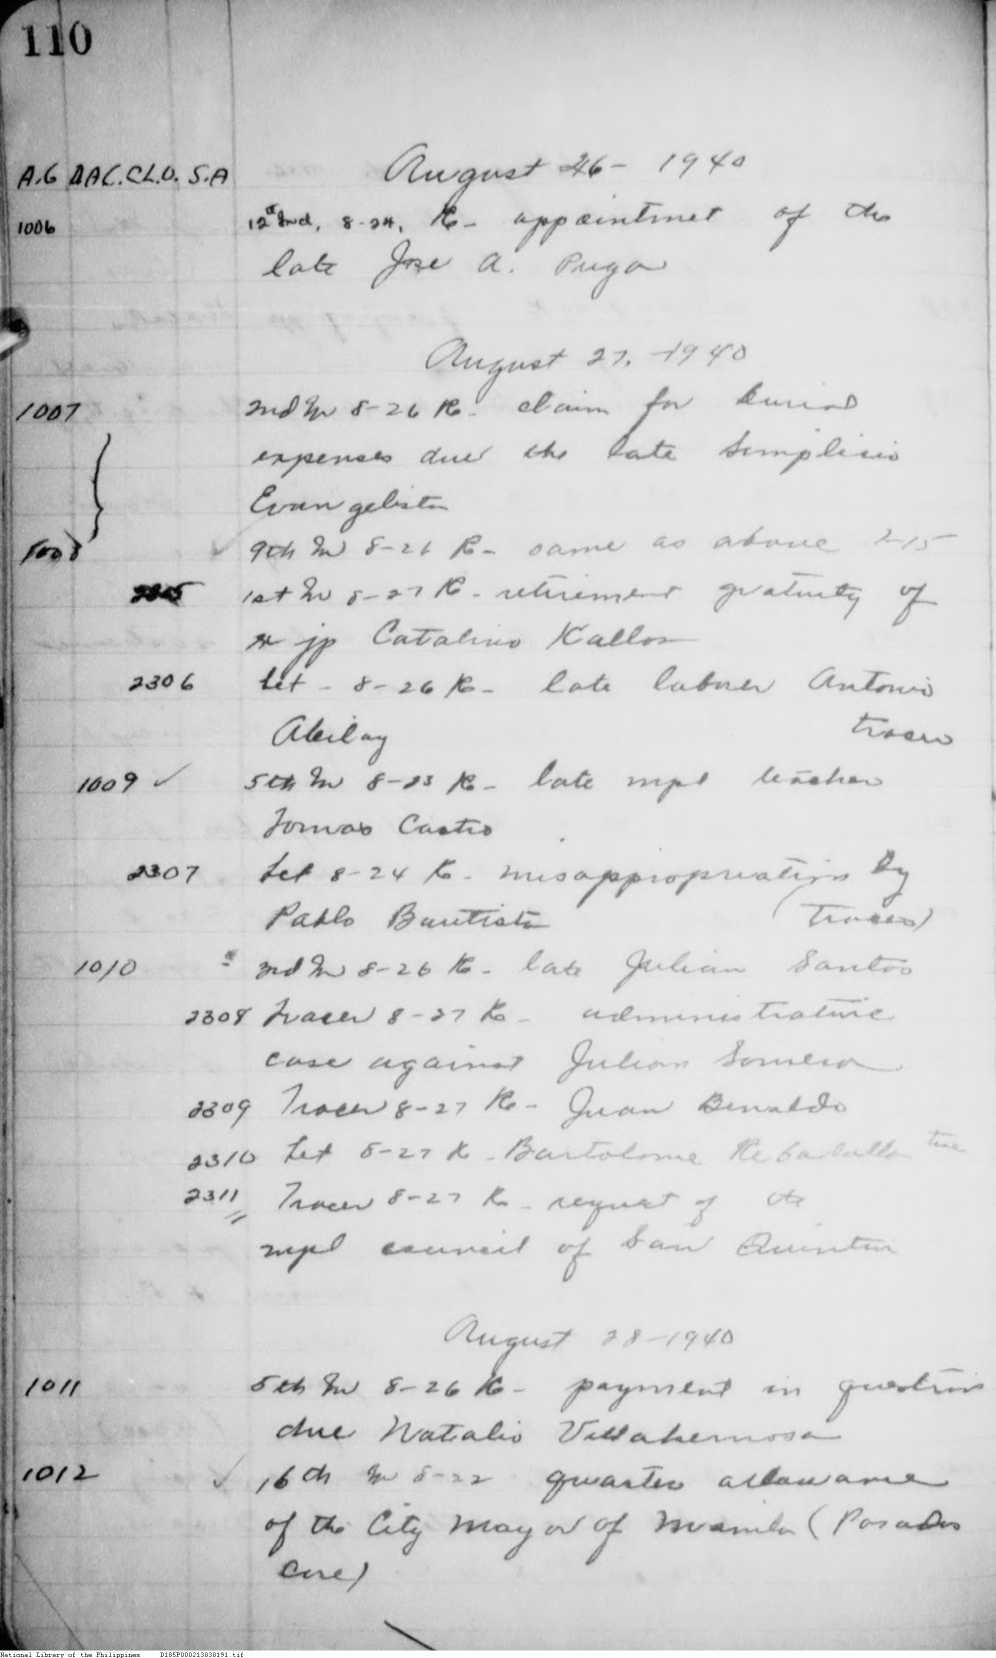 110
A.G AAC. CLO. S.A
August 26 - 1940
1006 12th Ind. 8-24. K- appointmet of the
late Jose A. Puga
August 27. -1940
1007 2nd In 8-26 K- claim for burial
expenses due the late Simplicio
Evangelista
1008 9th In 8-26 K- same as above 2-15
2305 1st In 8-27 K- retirement gratuity of
ex jp Catalino Kallos
2306 Let - 8-26 K- late laborer Antonio
Abilay tracer
1009 5th In 8-23 K- late mpl teacher
Tomas Castro
2307 Let 8-24 K- misappropriation by
Pablo Bautista (tracer)
1010 2nd In 8-26 K- late Julian Santos
2308 Tracer 8-27 K- administrative
case against Julian Somera
2309 Tracer 8-27 K- Juan Benaldo
2310 Let 8-27 K- Bartolome
2311 Tracer 8-27 K- request of the
mpl council of San Quintin
August 28-1940
1011 5th In 8-26 K- payment in question
due Natalio Villahermosa
1012 16th In 8-22 quarters allowance
of the City Mayor of Manila (Posadas
Case)
National Library of the Philippines D185P000213838191.tif